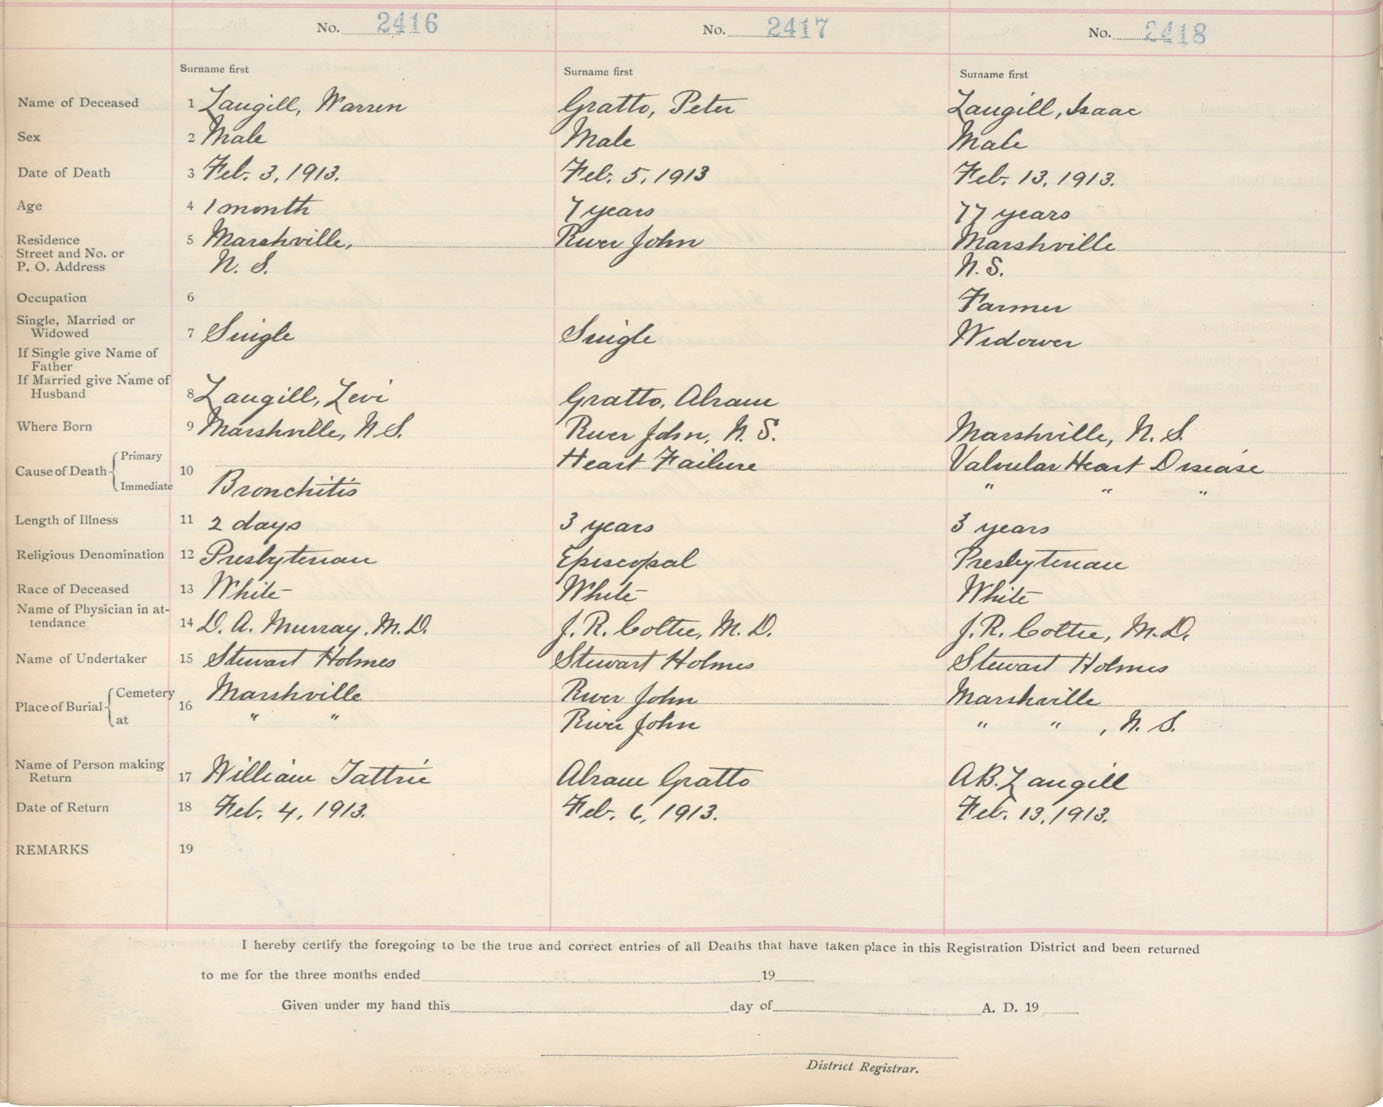 No. 2416 No. 2417 No. 2418
Surname first Surname first Surname first
Name of Deceased 1 Langill, Warren Gratto, Peter Langill, Isaac
Sex 2 Male Male Male
Date of Death 3 Feb. 3, 1913. Feb. 5, 1913 Feb. 13, 1913.
Age 4 1 month 7 years 77 years
Residence 5 Marshville, River John Marshville
Street and No. or
P. O. Address N. S. N. S.
Occupation 6 Farmer
Single, Married or
Widowed 7 Single Single Widower
If Single give Name of
Father
If Married give Name of
Husband 8 Langill, Levi Gratto, Abram
Where Born 9 Marshville, N. S. River John, N. S. Marshville, N. S.
Cause of Death 10 Primary Heart Failure Valvular Heart Disease
Immediate Bronchitis " " "
Length of Illness 11 2 days 3 years 3 years
Religious Denomination 12 Presbyterian Episcopal Presbyterian
Race of Deceased 13 White White White
Name of Physician in at-
tendance 14 D. A. Murray, M. D. J. R. Collie, M. D. J. R. Collie, M. D.
Name of Undertaker 15 Stewart Holmes Stewart Holmes Stewart Holmes
Place of Burial 16 Cemetery Marshville River John Marshville
at " " River John " " , N. S.
Name of Person making
Return 17 William Tattrie Abram Gratto A B. Langill
Date of Return 18 Feb. 4, 1913. Feb. 6, 1913. Feb. 13, 1913.
REMARKS 19
I hereby certify the foregoing to be the true and correct entries of all Deaths that have taken place in this Registration District and been returned
to me for the three months ended 19
Given under my hand this day of A. D. 19
District Registrar.